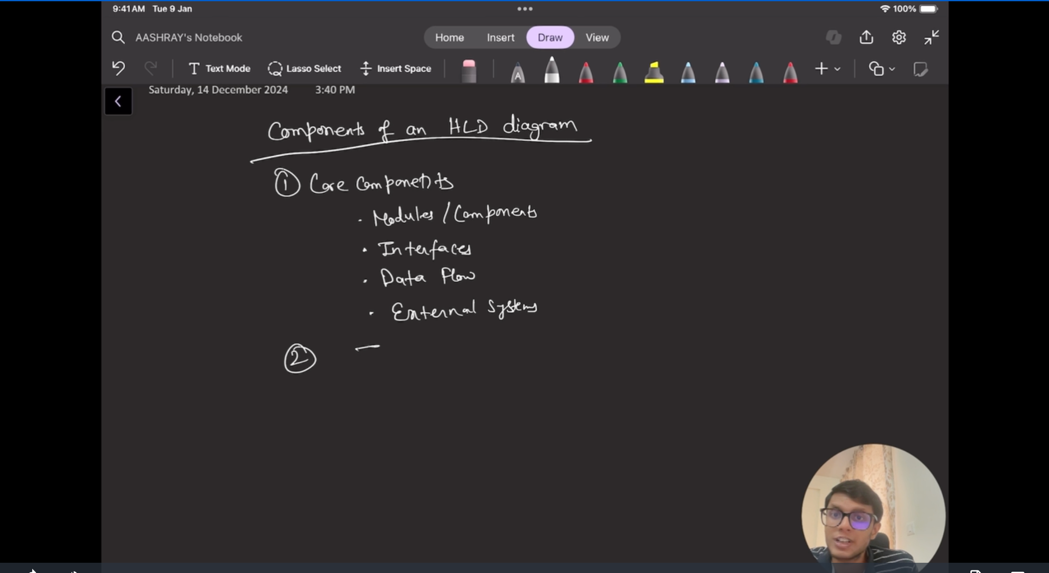 9:41AM Tue 9 Jan 100%
AASHRAY's Notebook Home Insert Draw View
Text Mode Lasso Select Insert Space
Saturday, 14 December 2024 3:40 PM
Components of an HLD diagram
① Core Components
· Modules / Components
· Interfaces
· Data Flow
· External Systems
②